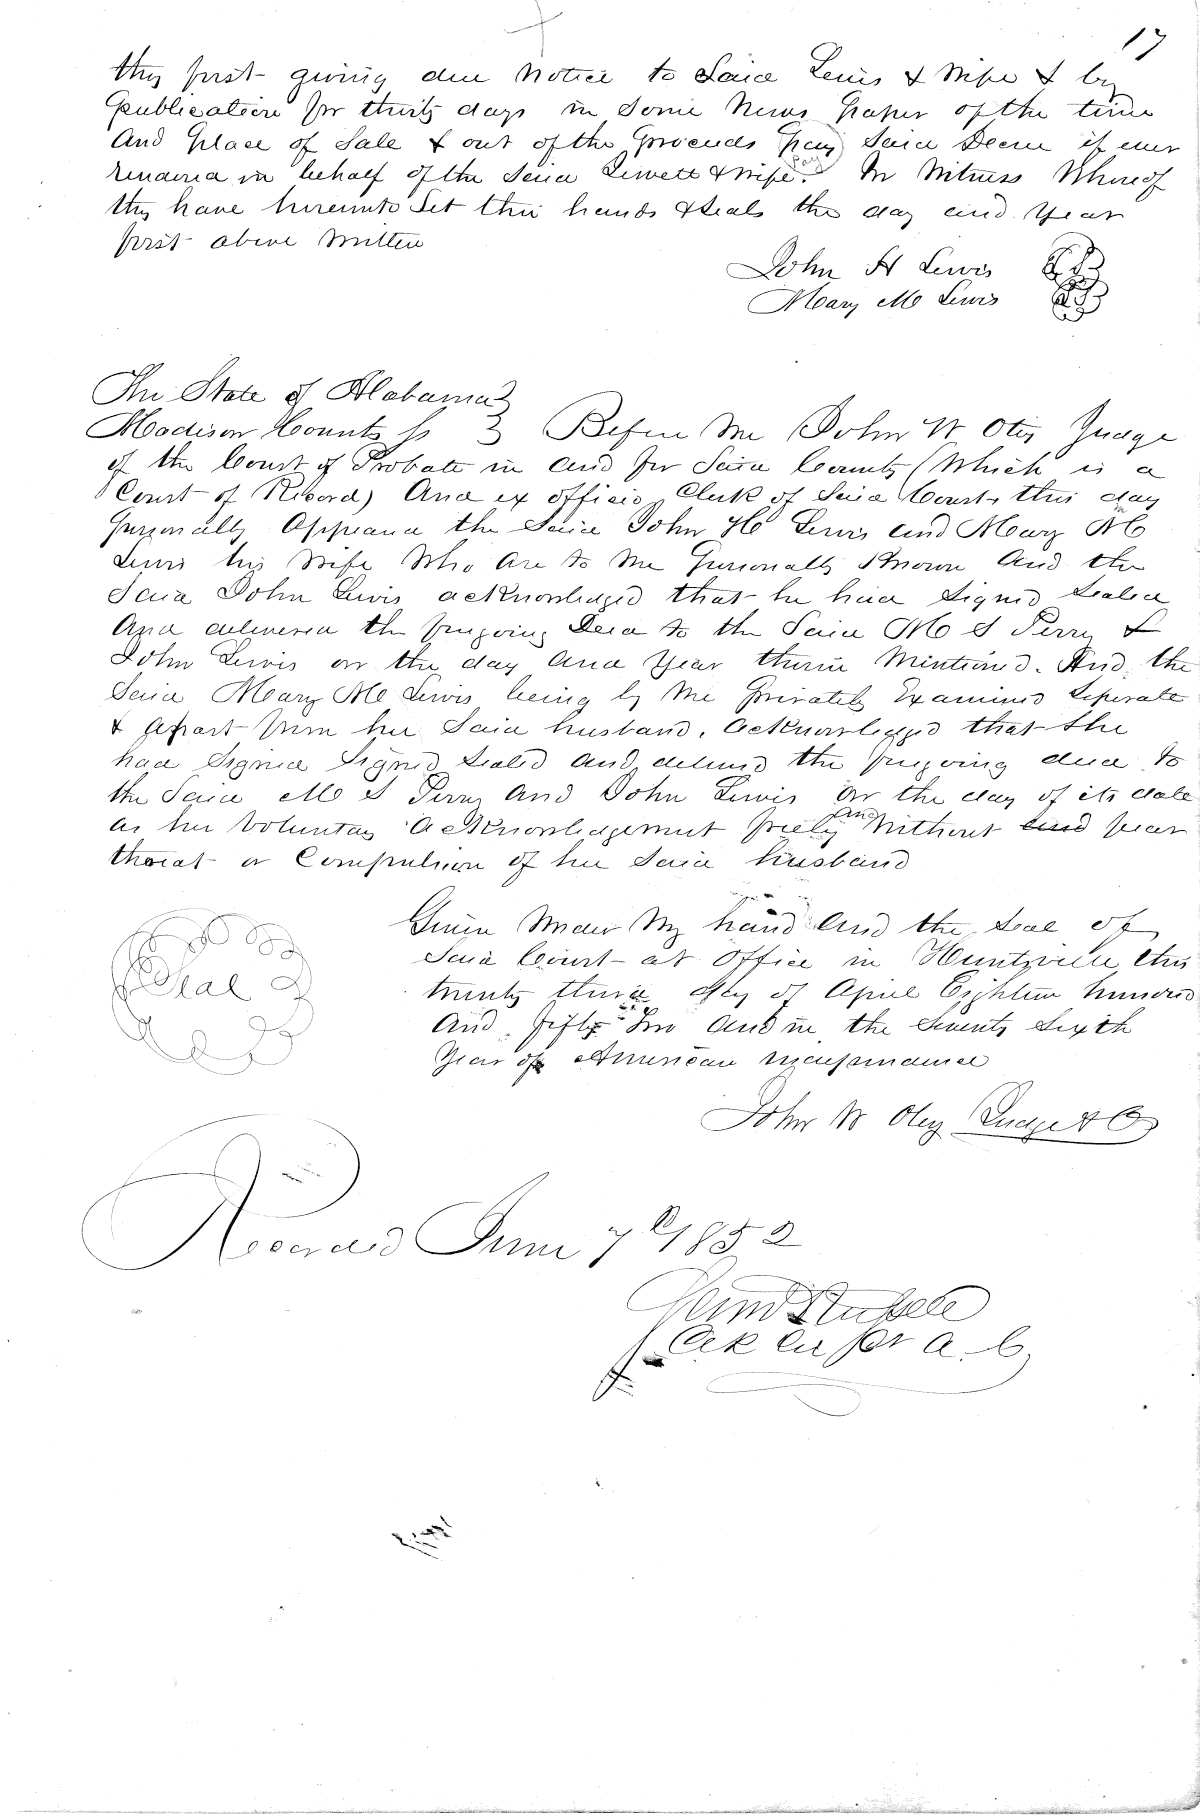 17
they first giving due notice to Said Lewis & wife & by
publication for thirty days in Some News paper of the time
And place of Sale & out of the proceeds pay Said Decree if ever
pay
rendered in behalf of the Said Lewett & wife. In Witness Whereof
they have hereunto Set their hands & Seals the day and year
first above written
John H Lewis
Mary M Lewis
The State of Alabama
Madison County Ss } Before me John W Otey Judge
of the Court of Probate in and for Said County (Which is a
Court of Record) And ex officio Clerk of Said Court this day
personally Appeared the Said John H Lewis and Mary M
Lewis his wife Who Are to me personally Known And the
Said John Lewis acknowledged that he had Signed Sealed
And delivered the foregoing Deed to the Said M S Perry &
John Lewis on the day and year therein Mentioned. And the
Said Mary M Lewis being by me privately Examined Seperate
& apart from her Said husband, acknowledged that She
had Signed Signed Sealed and delivered the foregoing deed to
the Said M S Perry And John Lewis on the day of its date
and
as her voluntary acknowledgement freely without fear
threat or Compulsion of her Said husband
Seal
Given under my hand and the Seal of
Said Court at office in Huntsville this
twenty third day of April Eighteen hundred
And fifty Two and in the Seventy Sixth
Year of American independence
John W Otey Judge & C
Recorded June 7th 1852